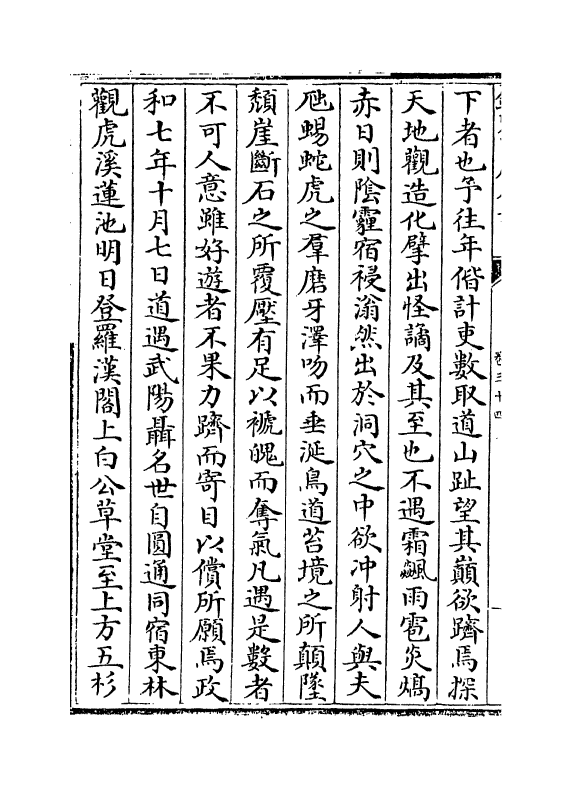 下者也予往年偕計吏數取道山趾望其巔欲躋焉探
天地觀造化擘出怪譎及其至也不遇霜飊雨雹炎熇
赤日則陰霾宿祲滃然出於洞穴之中欲冲射人與夫
虺蜴蛇虎之羣磨牙澤吻而垂涎鳥道苔境之所顛墜
頽崖斷石之所覆壓有足以褫魄而奪氣凡遇是數者
不可人意雖好遊者不果力躋而寄目以償所願焉政
和七年十月七日道遇武陽聶名世自圓通同宿東林
觀虎溪蓮池明日登羅漢閣上白公草堂至上方五杉
卷三十四